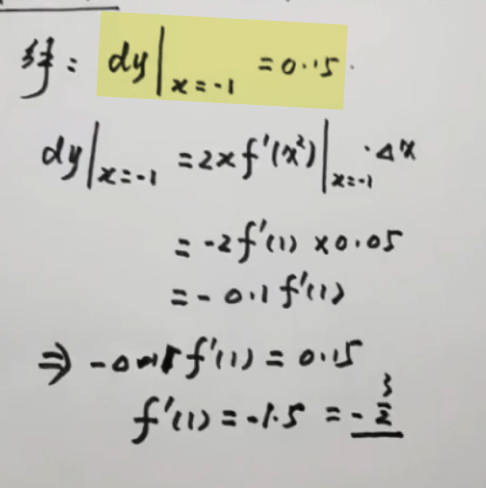 解: dy|ₓ₌₋₁ = 0.15.
dy|ₓ₌₋₁ = 2x f'(x²)|ₓ₌₋₁ · Δx
= -2f'(1) × 0.05
= -0.1 f'(1)
⇒ -0.1 f'(1) = 0.15
f'(1) = -1.5 = -3/2